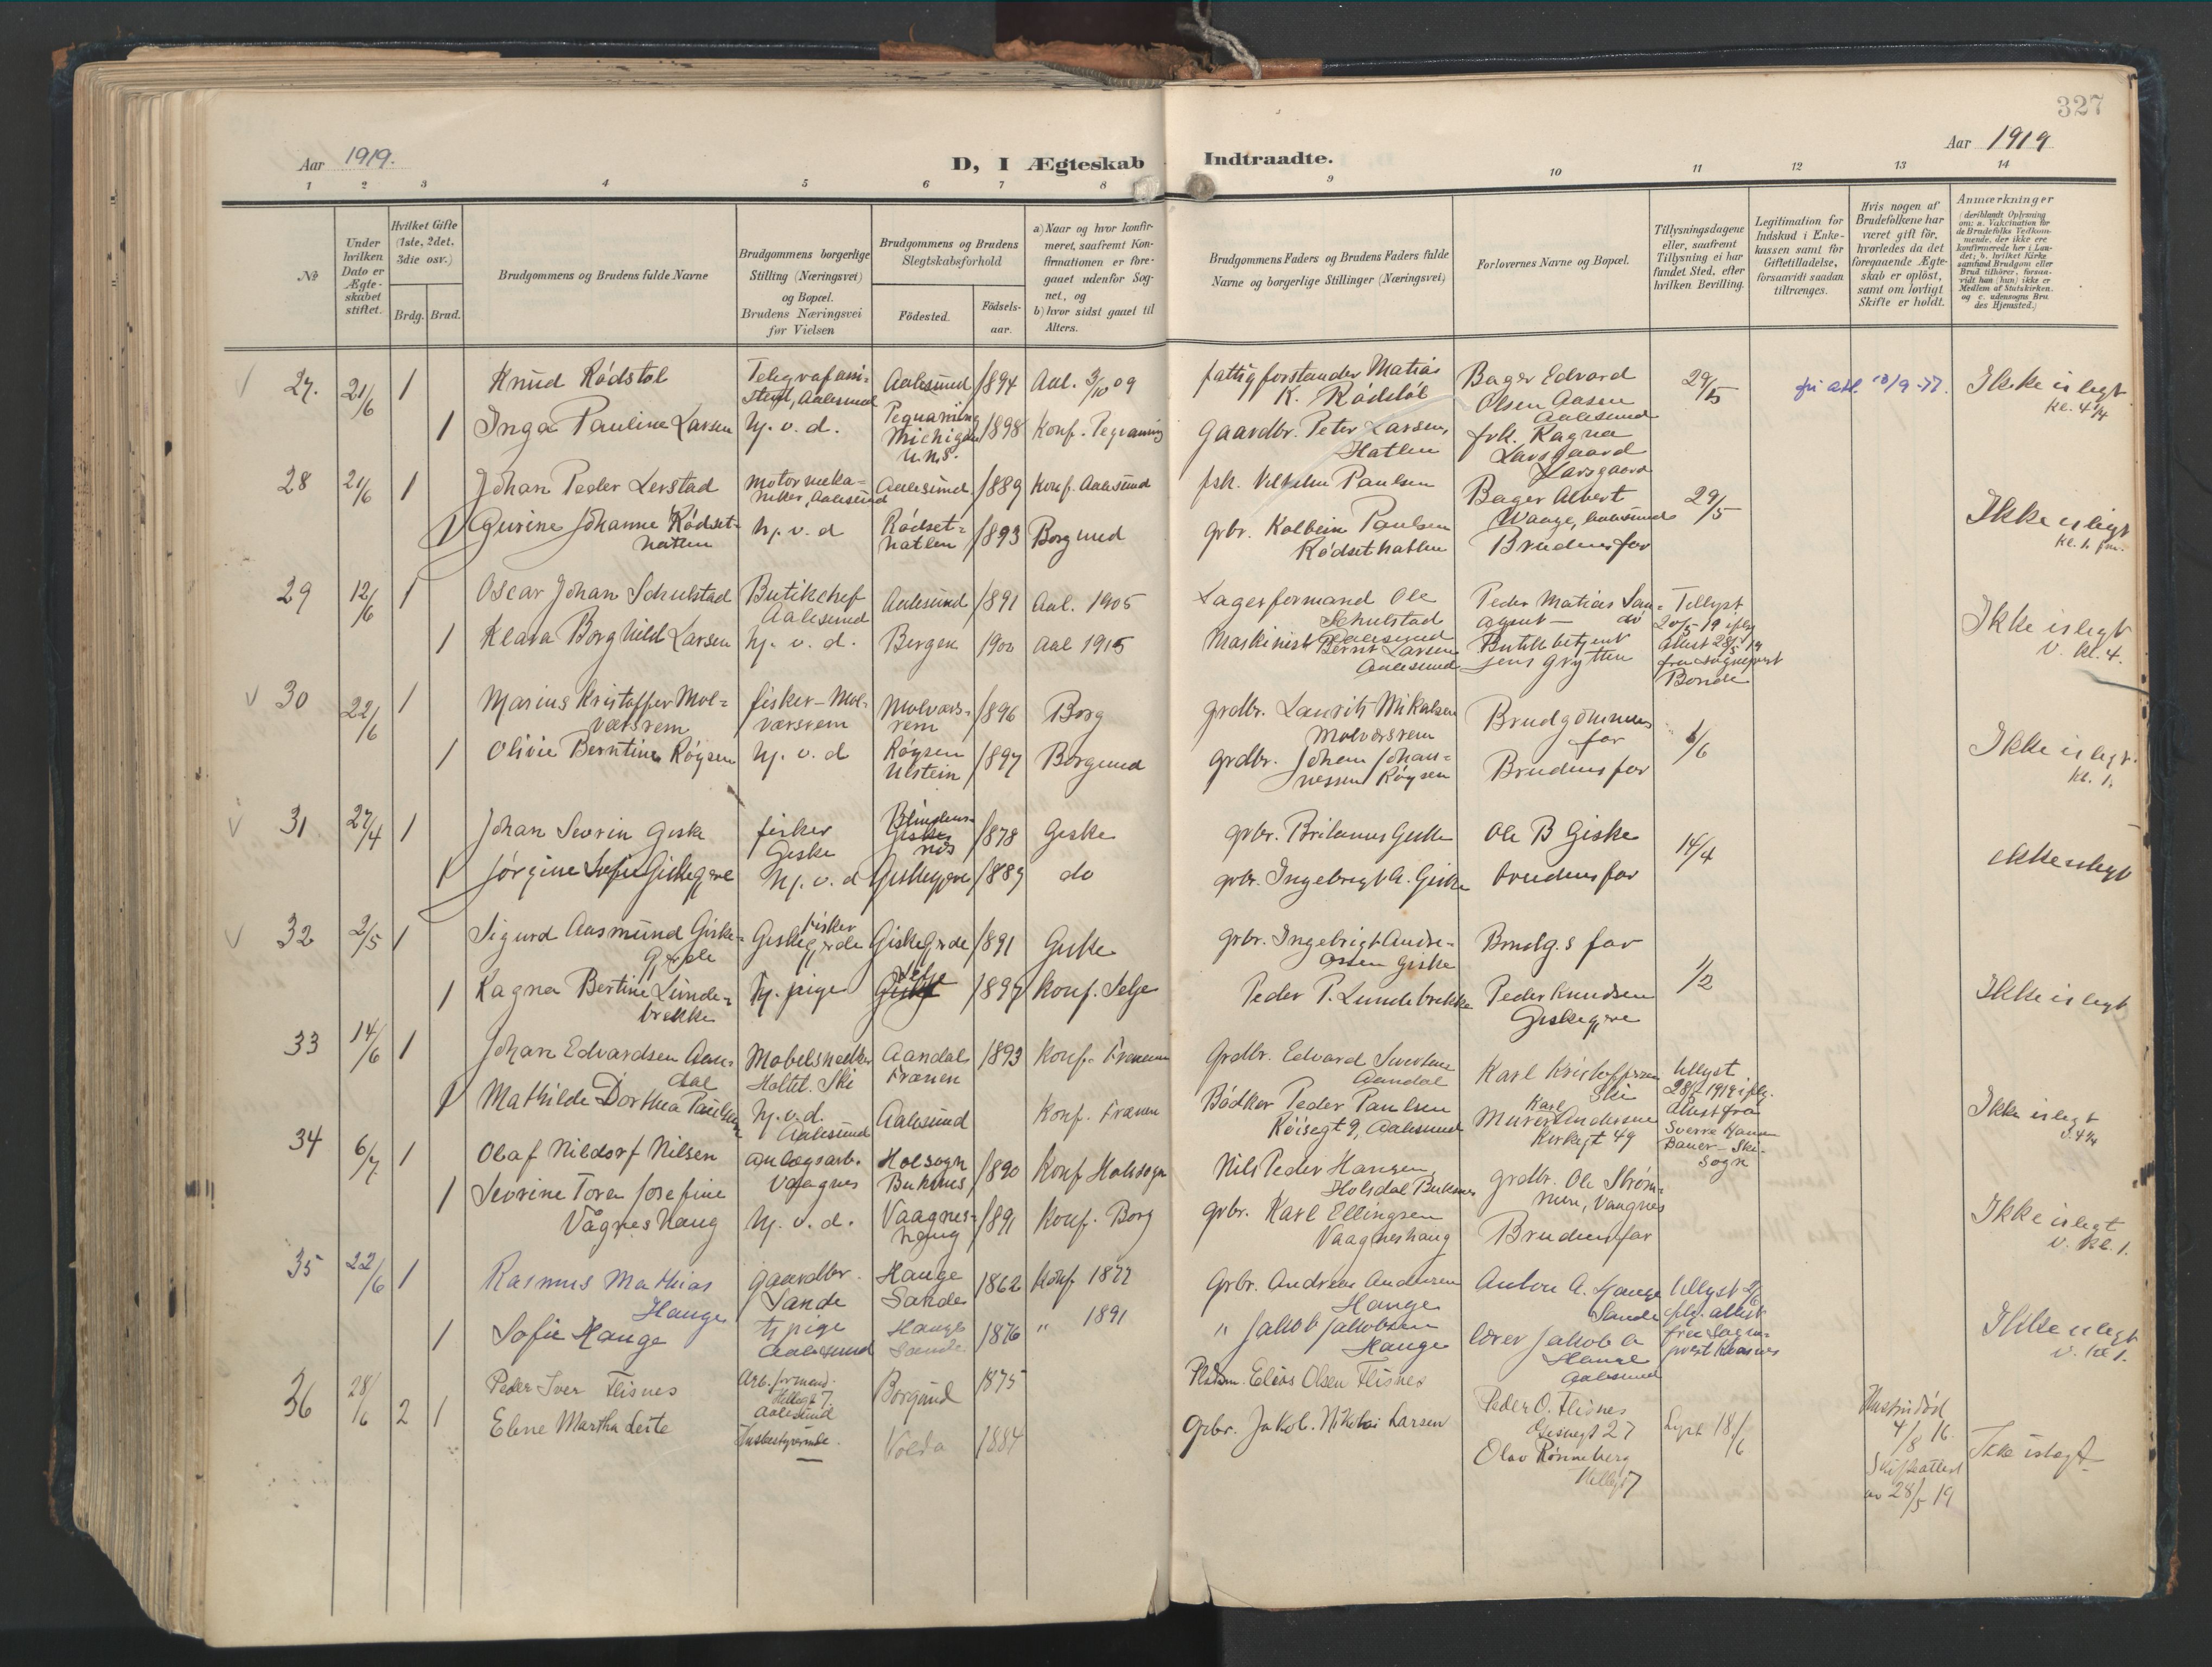 327
Aar 1919.
D, I Ægteskab Indtraadte.
Aar 1919
1 2 3 4 5 6 7 8 9 10 11 12 13 14
No
Under hvilken Dato er Ægteskabet stiftet.
Hvilket Gifte (1ste, 2det, 3die osv.)
Brdg. Brud.
Brudgommens og Brudens fulde Navne
Brudgommens borgerlige Stilling (Næringsvei) og Bopæl. Brudens Næringsvei før Vielsen
Brudgommens og Brudens Slegtskabsforhold
Födested. Födselsaar.
a) Naar og hvor konfirmeret, saafremt Konfirmationen er foregaaet udenfor Sognet, og b) hvor sidst gaaet til Alters.
Brudgommens Faders og Brudens Faders fulde Navne og borgerlige Stillinger (Næringsvei)
Forlovernes Navne og Bopæl.
Tillysningsdagene eller, saafremt Tillysning ei har fundet Sted, efter hvilken Bevilling.
Legitimation for Indskud i Enkekassen samt for Giftetilladelse, forsaavidt saadan tiltrænges.
Hvis nogen af Brudefolkene har været gift för, hvorledes da det foregaaende Ægteskab er oplöst, samt om lovligt Skifte er holdt.
Anmærkninger
(deriblandt Oplysning om: a. Vakcination for de Brudefolks Vedkommende, der ikke ere konfirmerede her i Landet; b. hvilket Kirkesamfund Brudgom eller Brud tilhører, forsaavidt han (hun) ikke er Medlem af Statskirken. og c. udensogns Brudes Hjemsted.)
27. 21/6 1 Knud Rødstøl Telegrafassistent, Aalesund Aalesund 1894 Aal. 3/10 09 fattigforstander Matias K. Rødstøl Bager Edvard Olsen Aasen Aalesund 29/5 Ikke i slegt
1 Inga Pauline Larsen Hj. v. d. Pequaming Michigan 1898 Konf. Pequaming Gaardbr. Peter Larsen Hatlen frk. Ragna Larsgaard Larsgaard
28 21/6 1 Johan Peder Lerstad motormekaniker, Aalesund Aalesund 1889 Konf. Aalesund fsk. Vilhelm Paulsen Bager Albert Waage, Aalesund 29/5 Ikke i slegt
1 Gurine Johanne Rødsethatlen hj. v. d Rødsethatlen 1893 Borgund grbr. Kolbein Paulsen Rødsethatlen Brudens far
29 12/6 1 Oscar Johan Schulstad Butikchef Aalesund Aalesund 1891 Aal. 1905 Lagerformand Ole Schulstad Aalesund Peder Matias agent Tillyst Ikke i slegt v. kl. 4.
1 Klara Borghild Larsen hj. v. d. Bergen 1900 Aal 1915 Maskinist Bernt Larsen Aalesund Jens Grytten
30 22/6 1 Marius Kristoffer Molværsrem fisker - Molværsrem Molværsrem 1896 Borg grdbr. Laurits Mikalsen Molværsrem Brudgommens far 6/6 Ikke i slegt kl. 1.
1 Olivie Berntine Røysen hj. v. d Røysen Ulstein 1897 Borgund grdbr. Johan Johannessen Røysen Brudens far
31 27/4 1 Johan Sevrin Giske fisker Giske 1878 Giske grbr. Giske Ole B Giske 14/4 ikke i slegt
1 Jørgine Sofie Giskegjere hj. v. d Giskegjere 1889 do grbr. Ingebrigt A. Giske brudens far
32 2/5 1 Sigurd Aasmund Giskegjerde fisker Giskegjerde Giskegjerde 1891 Giske grbr. Ingebrigt Andreassen Giske Brudg.s far 1/2 Ikke i slegt
1 Ragna Bertine Lundebrekke Tj. pige Selje 1897 Konf. Selje Peder P. Lundebrekke Peder Knudsen Giskegjere
33 14/6 1 Johan Edvardsen Aandal Møbelsnedker Ski Aandal Frænen 1893 Konf. Frænen Grdbr. Edvard Aandal Karl Kristoffersen Ski tillyst Ikke i slegt
1 Mathilde Dorthea Paulsen hj. v. d. Aalesund Aalesund Konf. Frænen Bødker Peder Paulsen Aalesund Karl Andersen Kirkegt 49 attest fra Sverre Bauer - Ski sogn
34 6/7 1 Olaf Nildorf Nilsen anlægsarb. Vaagnes Holsogn Buksnes 1890 Konf Holsogn Nils Peder Hansen Holsdal Buksnes grdbr. Ole Vaagnes Ikke i slegt v. kl. 1.
1 Sevrine Tora Josefine Vågneshaug hj. v. d. Vaagneshaug 1891 Konf. Borg grbr. Karl Ellingsen Vaagneshaug Brudens far
35 22/6 1 Rasmus Mathias Hauge gaardbr. Sande Hauge Sande 1862 Konf 1877 Grbr. Andreas Andersen Hauge Anton A. Hauge Sande tillyst Ikke i slegt v. kl 1.
1 Sofie Hauge tj pige Aalesund Hauge Sande 1876 " 1891 " Jakob Jakobsen Hauge lærer Jakob Hauge Aalesund
36 28/6 2 1 Peder Iver Flisnes Arb. formand. Aalesund Borgund 1875 Pladsm. Elias Olsen Flisnes Peder O. Flisnes 27 Lyst 18/6 4/8 16. Skifteattest av 28/5 19 Ikke i slegt
Eline Martha Leite Husbestyrerinde Volda 1884 Grbr. Jakob. Nikolai Larsen Olav Rønneberg